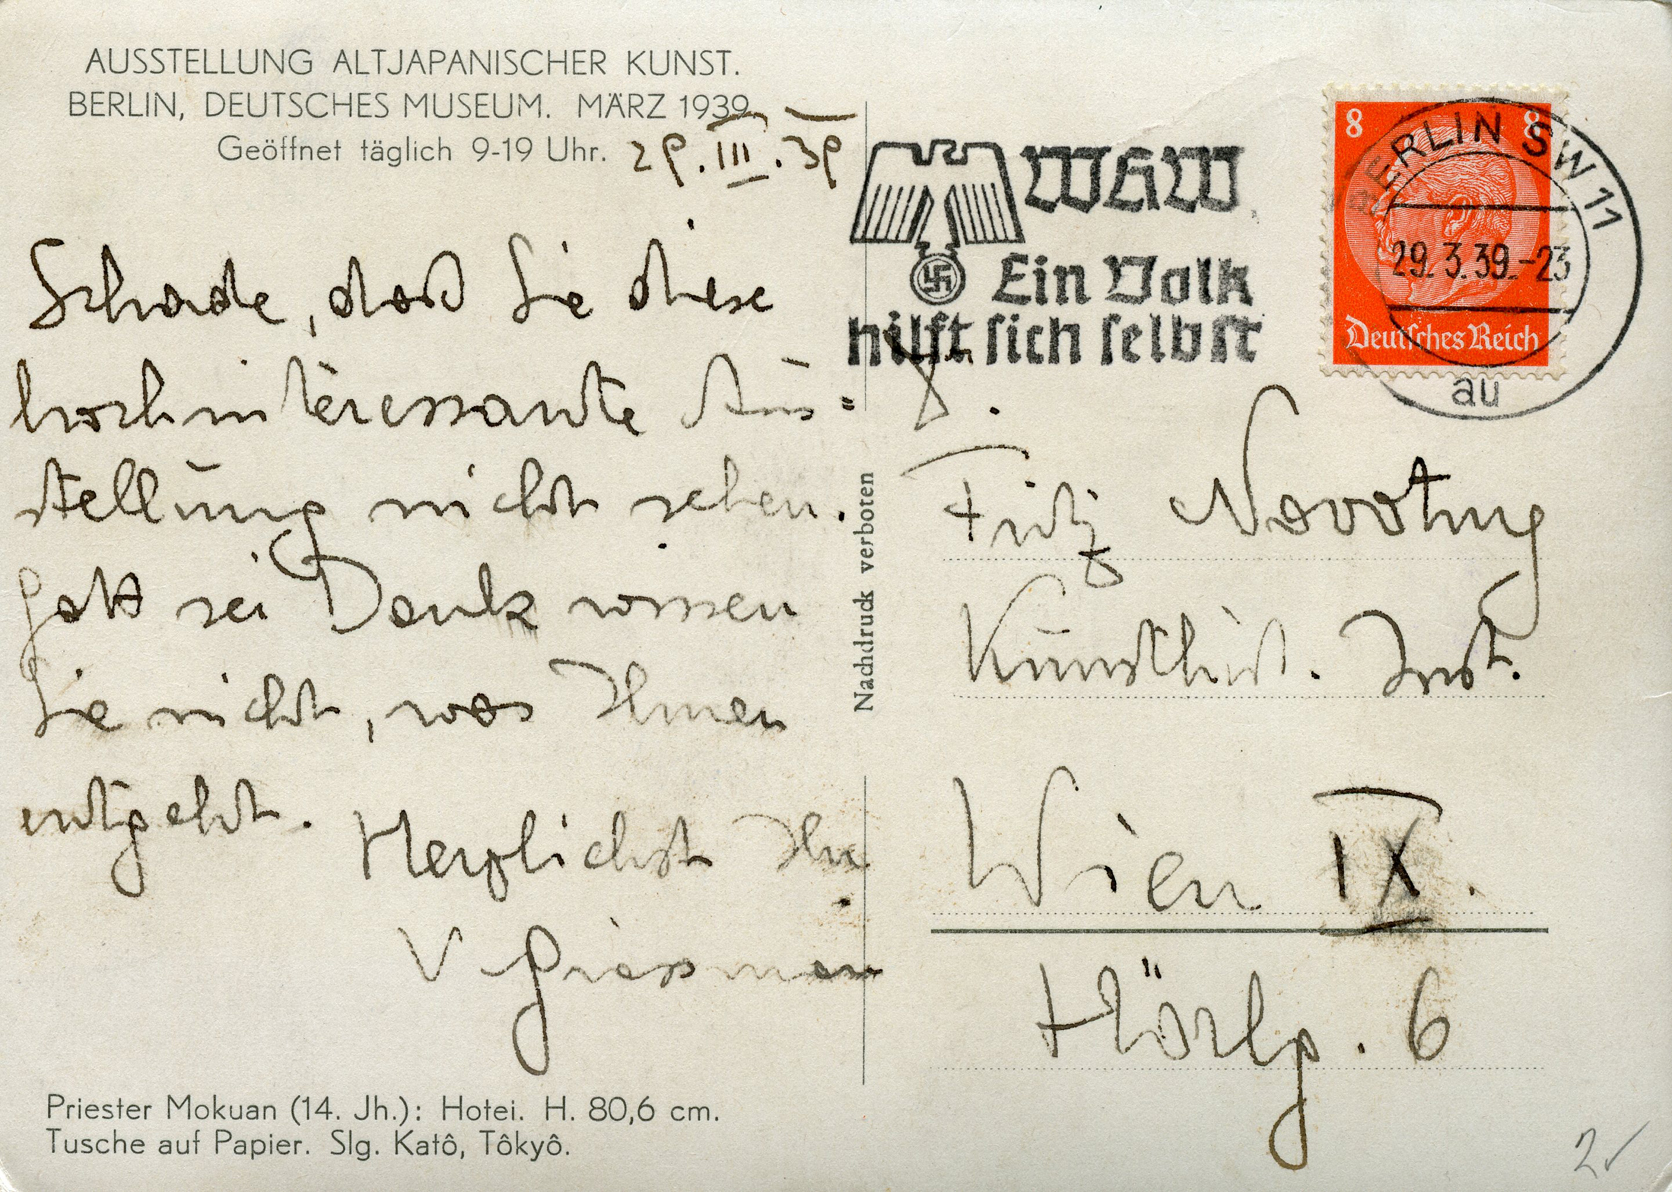 AUSSTELLUNG ALTJAPANISCHER KUNST.
BERLIN, DEUTSCHES MUSEUM. MÄRZ 1939
Geöffnet täglich 9-19 Uhr.
29.III.39
Schade, daß Sie diese
hochinteressante Aus=
stellung nicht sehen.
Gott sei Dank wissen
Sie nicht, was Ihnen
entgeht.
Herzlichst Ihr
V
Priester Mokuan (14. Jh.): Hotei. H. 80,6 cm.
Tusche auf Papier. Slg. Katô, Tôkyô.
Nachdruck verboten
WHW
Ein Volk
hilft sich selbst
8 8
Deutsches Reich
BERLIN SW 11
29.3.39.-23
au
Fritz Novotny
Kunsthist. Inst.
Wien IX.
Hörlg. 6
2